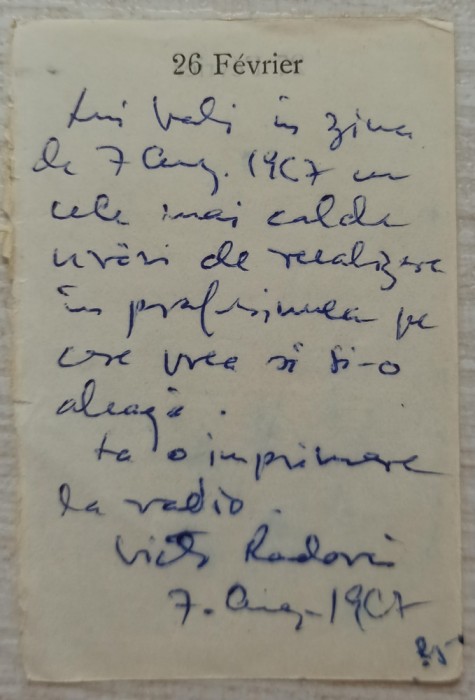 26 Février
Lui Vali în ziua
de 7 Aug. 1967 cu
cele mai calde
urări de realizare
în profesiunea pe
care vrea să și-o
aleagă.
La o imprimare
la radio.
7. Aug. 1967